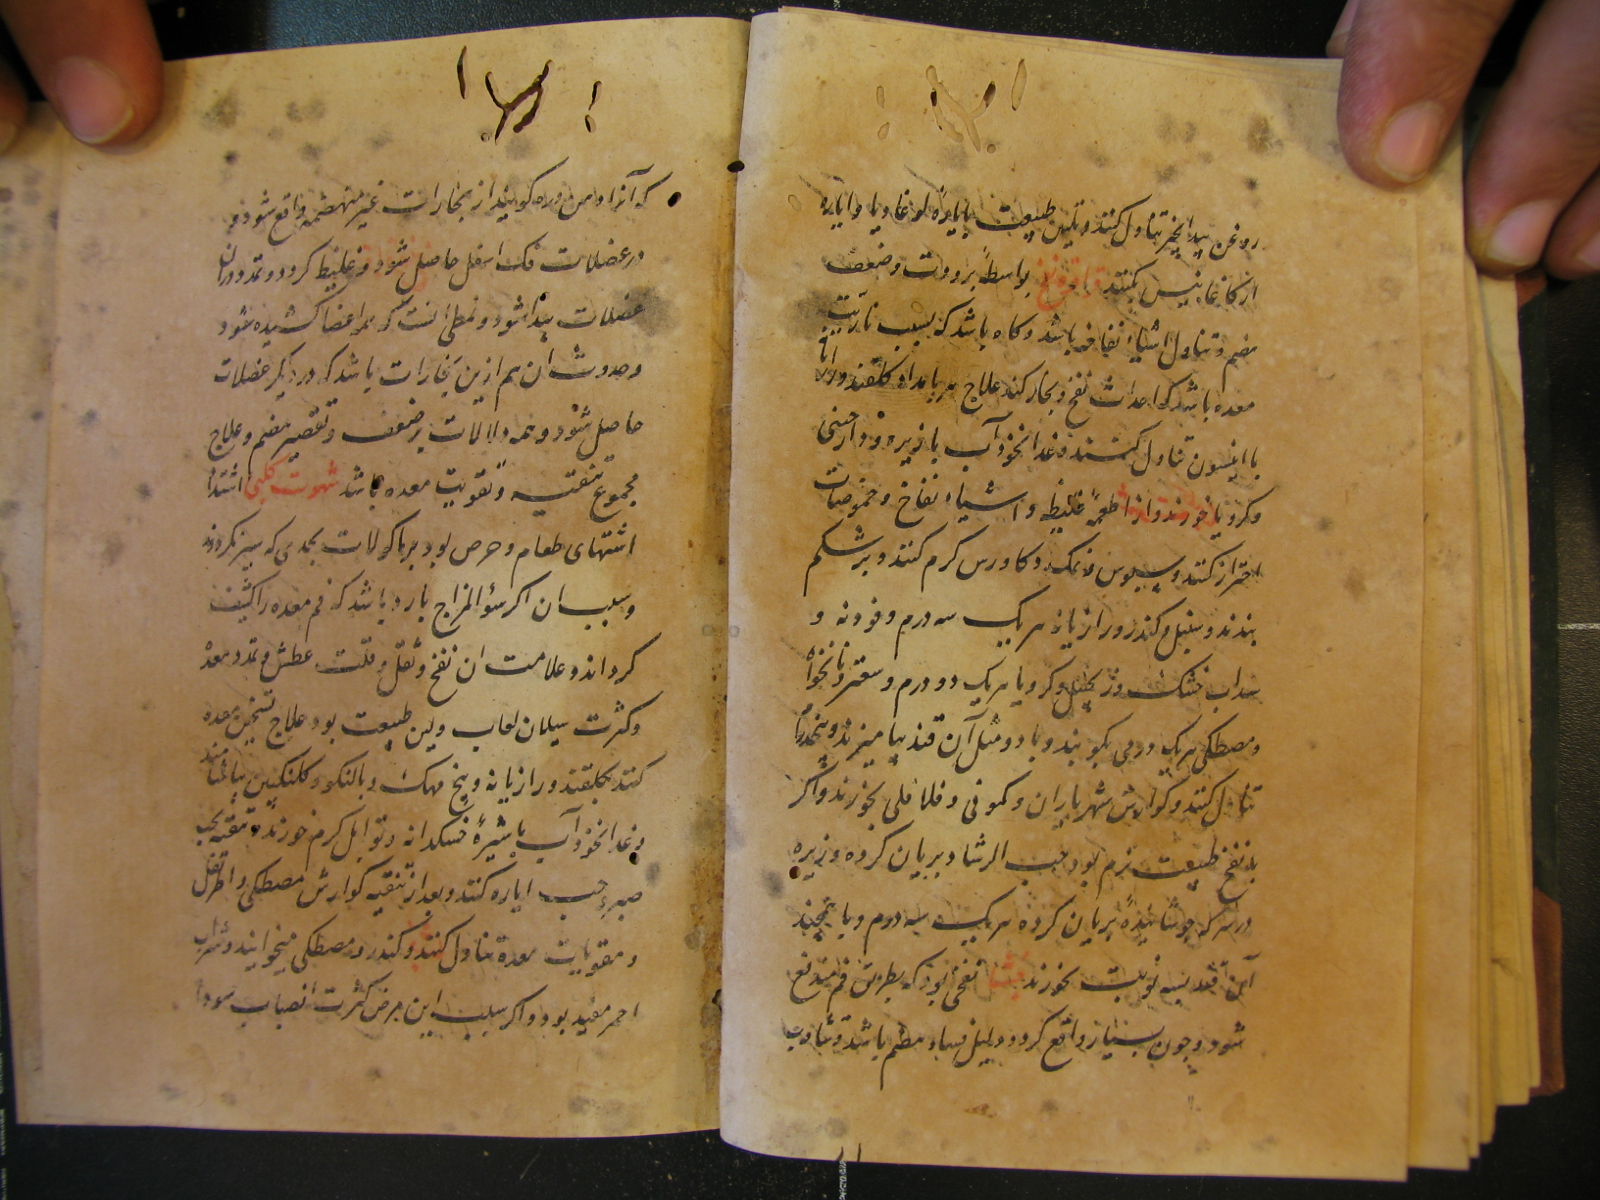 روغن بیدانجیر تناول کنند و تلیین طبیعت بایاره لوغاذیا و ایاره
ارکاغانیس کنند بواسطهٔ برودت و ضعف
هضم و تناول اشیاء نفاخه باشد و کاه باشد که بسبب ناریت
معده باشد که احداث نفخ و بخار کند علاج هر بامداد کلقند
با انیسون تناول کنند و غدا نخودآب با زیره و دارچینی
و کرویا خورند و از اطعمهٔ غلیظ و اشیاء نفاخ و حموضات
احتراز کنند و سبوس و نمک و کاورس کرم کنند و بر شکم
بندند و سنبل و کندر و رازیانه هر یک سه درم و فودنه و
سداب خشک و زنجبیل و کرویا هر یک دو درم و سعتر و نانخواه
و مصطکی هر یک درمی بکوبند و با دو مثل آن قند بیامیزند و پنجدرم
تناول کنند و کوارش شهریاران و کمونی و فلافلی بخورند و اکر
با نفخ طبیعت نرم بود حب الرشاد بریان کرده و زیره
در سرکه جوشانیده بریان کرده هر یک سه درم و با پنجند
آن قند بسه نوبت بخورند جشا نفخی بود که بطریق فم مندفع
شود و چون بسیار واقع کردد دلیل فساد هضم باشد و تثاوب
که آنرا دهن دره کویند از بخارات غیر منهضمه واقع شود و
در عضلات فک اسفل حاصل شود و غلیظ کردد و تمدد در آن
عضلات پیدا شود و تمطی آنست که همه اعضا کشیده شود
و حدوث آن هم ازین بخارات باشد که در دیکر عضلات
حاصل شود و همه دلالات بر ضعف و تقصیر هضم و علاج
مجموع تنقیه و تقویت معده باشد شهوت کلبی اشتداد
اشتهای طعام و حرص بود بر ماکولات بحدی که سیر نکردند
و سبب آن اکر سؤالمزاج بارد باشد که فم معده را کثیف
کرداند و علامت ان نفخ و ثقل و قلت عطش و تمدد معده
و کثرت سیلان لعاب و لین طبیعت بود علاج تسخین معده
کنند بکلقند و رازیانه و بیخ مهک و بالنکو و کلنکبین بیاشامند
و غدا نخودآب با شیرهٔ خسکدانه و توابل کرم خورند و تنقیه بحب
صبر و حب ایاره کنند و بعد از تنقیه کوارش مصطکی و اطریفل
و مقویات معده تناول کنند و کندر و مصطکی میخوایند و شراب
احمر مفید بود و اکر سبب این مرض کثرت انصباب سودا